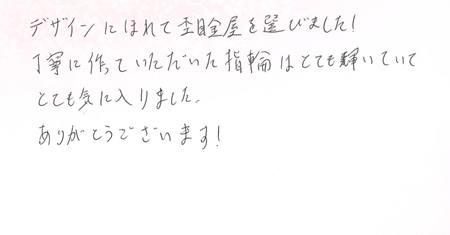 デザインにほれて杢目金屋を選びました!
丁寧に作っていただいた指輪はとても輝いていて
とても気に入りました。
ありがとうございます!